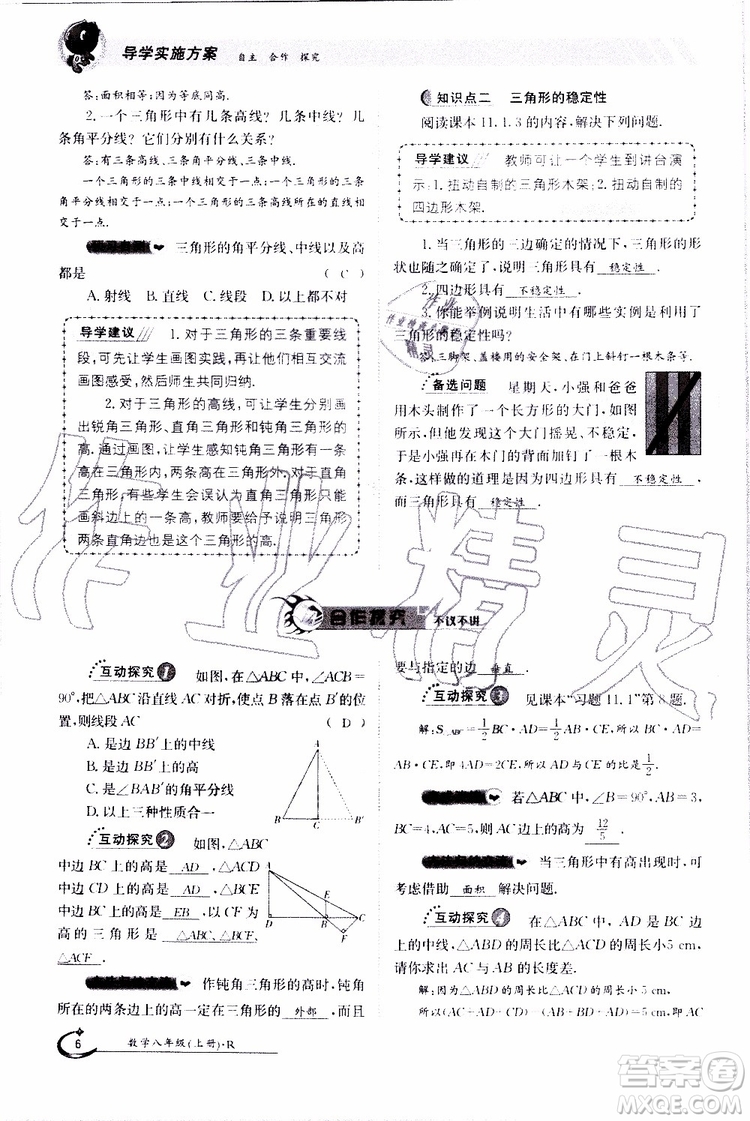 导学实施方案 自主 合作 探究
答:面积相等;因为等底同高.
2.一个三角形中有几条高线?几条中线?几
条角平分线?它们分别有什么关系?
答:有三条高线、三条中线、三条角平分线.
一个三角形的三条中线相交于一点,三条角平
分线相交于一点,三条高线所在的直线相
交于一点.
三角形的角平分线、中线以及高
都是 ( C )
A.射线 B.直线 C.线段 D.以上都不对
导学建议 1.对于三角形的三条重要线
段,可先让学生画图实践,再让他们相互交流
画图感受,然后师生共同归纳.
2.对于三角形的高线,可让学生分别画
出锐角三角形、直角三角形和钝角三角形的
高.通过画图,让学生感知钝角三角形的三条
高在三角形内部有一条,外部有两条.对于直角
三角形,有些学生会误认为直角三角形只能
画斜边上的一条高,教师要给予说明三角形
两条直角边也是三角形的高.
知识点二 三角形的稳定性
阅读课本11.1.3的内容,解决下列问题.
导学建议 教师可让一个学生到讲台演
示:1.扭动自制的三角形木架;2.扭动自制的
四边形木架.
1.当三角形的三边确定的情况下,三角形的形
状也随之确定了,说明三角形具有 稳定性 .
2.四边形具有 不稳定性 .
3.你能举例说明生活中有哪些实例是应用了
三角形的稳定性吗?
答:三脚架、盖楼用的安全架、在门上斜钉一根木条等.
备选问题 星期天,小强和爸爸
用木头制作了一个长方形的大门,如图
所示,但发现这个大门摇晃、不稳
固,于是小强再在木门的背面加钉了一根木
条,这样做的道理是因为四边形具有 不稳定性 ,
而三角形具有 稳定性 .
合作探究 不议不讲
互动探究1 如图,在△ABC中,∠ACB=
90°,把△ABC沿直线AC对折,使点B落在点B′的位
置,则线段AC ( D )
A.是边BB′上的中线
B.是边BB′上的高
C.是∠BAB′的角平分线
D.以上三种性质合一
A
B′ C B
互动探究2 如图,△ABC
中边BC上的高是 AD ,△ACD
中边CD上的高是 AD ,△BCE
中边BC上的高是 EB ,以CF为
高的三角形是 △ABC、△BCF、
△ACF .
A
E
D B C
F
作钝角三角形的高时,钝角
所在的两条边上的高一定在三角形的 外部 ,
要与指定的边 垂直 .
互动探究3 见课本“习题11.1”第8题.
解:S△ABC=1/2BC·AD=1/2AB·CE,所以BC·AD=
AB·CE,即4AD=2CE,所以AD与CE的比是1/2.
若∠B=90°,AB=3,
BC=4,AC=5,则边AC上的高为 12/5 .
当三角形中有高出现时,可
考虑借助 面积 解决问题.
互动探究4 在△ABC中,AD是边BC上
的中线,△ABD的周长比△ACD的周长小5 cm,
请你求出边AC与AB的长度差.
解:因为△ABD的周长比△ACD的周长小5 cm,
所以AC+CD+AD-(AB+BD+AD)=5 cm,即AC-AB=5 cm.
6 数学八年级(上册)·R
作业精灵
答案圈
MXQE.COM